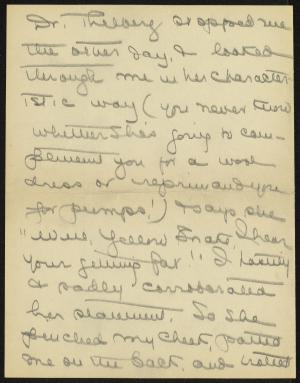 Dr. Thelberg stopped me
the other day, & looked
through me in her character-
istic way (you never know
whether she's going to com-
pliment you for a wool
dress or reprimand you
for pumps!) & says she
"Well, Yellow Braid, I hear
your getting fat!" I
& sadly corroborated
her statement. So she
pinched my cheek, patted
me on the back, and